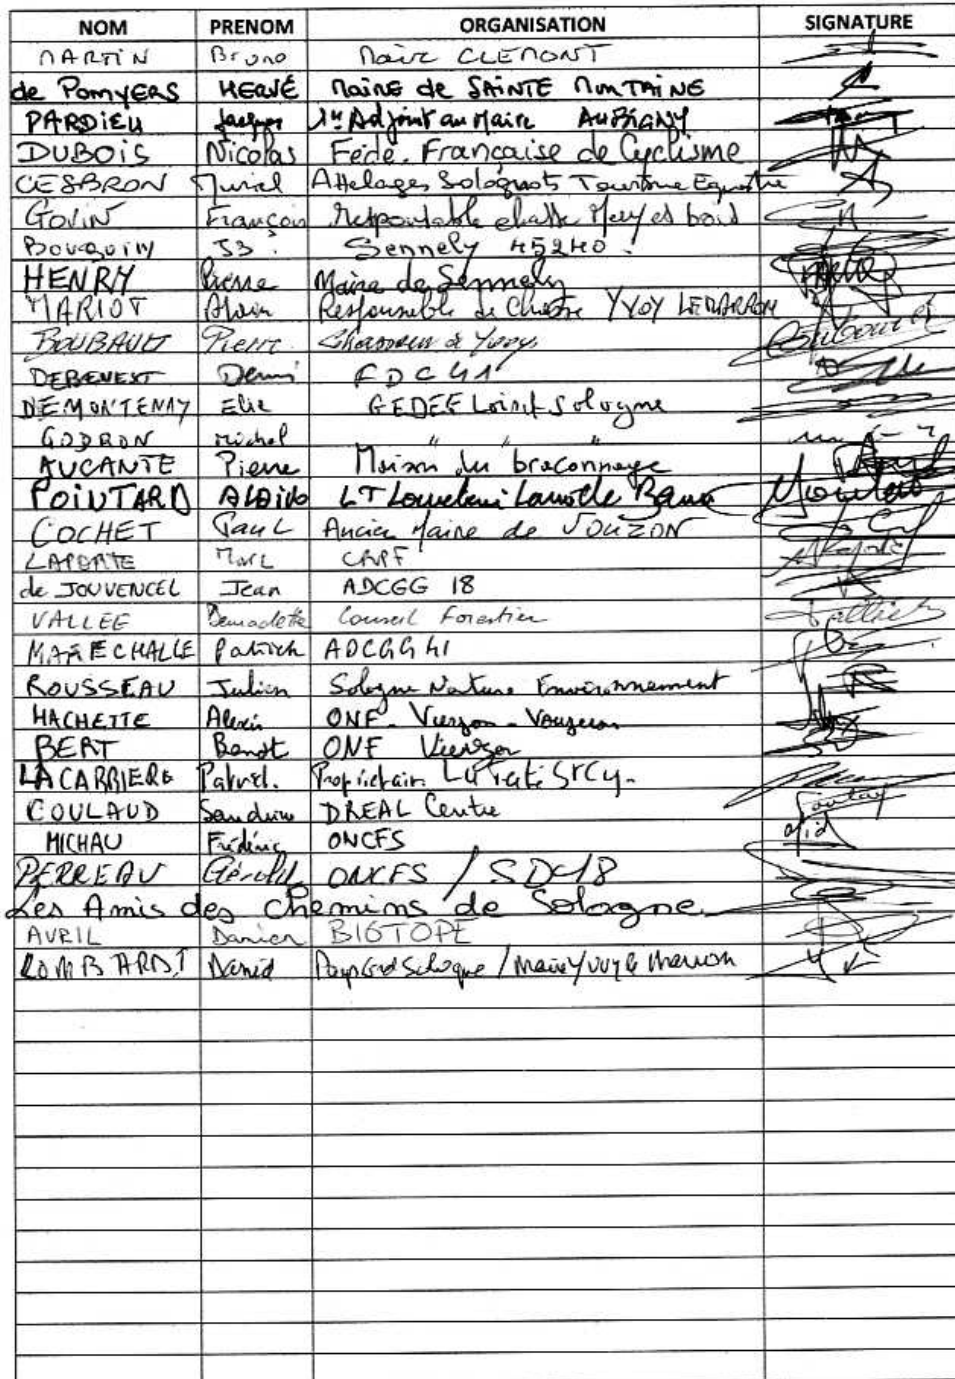 NOM PRENOM ORGANISATION SIGNATURE
MARTIN Bruno Maire CLEMONT
de POMYERS HERVÉ MAIRE de SAINTE MONTAINE
PARDIEU Jacques 1er Adjoint au Maire AUBIGNY
DUBOIS Nicolas Fédé. Française de Cyclisme
CESBRON Muriel Attelages Solognots Tourisme Equestre
GOVIN François Responsable chasse
BOUQUIN JB. Sennely 45240.
HENRY Pierre Maire de Sennely
MARIOT Alain Responsable de Chasse YVOY LE MARRON
BOUBAULT Pierre Chasseur à Yvoy
DEBENEST Denis FDC 41
DEMONTENAY Elie GEDEF Loiret Sologne
GODRON Michel " " "
AUCANTE Pierre Maison du braconnage
POINTARD Alain LT Louveterie Lamotte
COCHET Paul Ancien Maire de VOUZON
LAPORTE Marc CRPF
de JOUVENCEL Jean ADCGG 18
VALLEE Bernadette Conseil Forestier
MARECHALLE Patrick ADCGG 41
ROUSSEAU Julien Sologne Nature Environnement
HACHETTE Alexis ONF - Vierzon - Vouzeron
BERT Benoît ONF Vierzon
LACARRIERE Patrick. Propriétaire
COULAUD Sandrine DREAL Centre
MICHAU Frédéric ONCFS
PERREAU Gérald ONCFS / SD 18
Les Amis des Chemins de Sologne
AVRIL Damien BIOTOPE
LOMBARDI David Pays Gd Sologne / Maire Yvoy le Marron